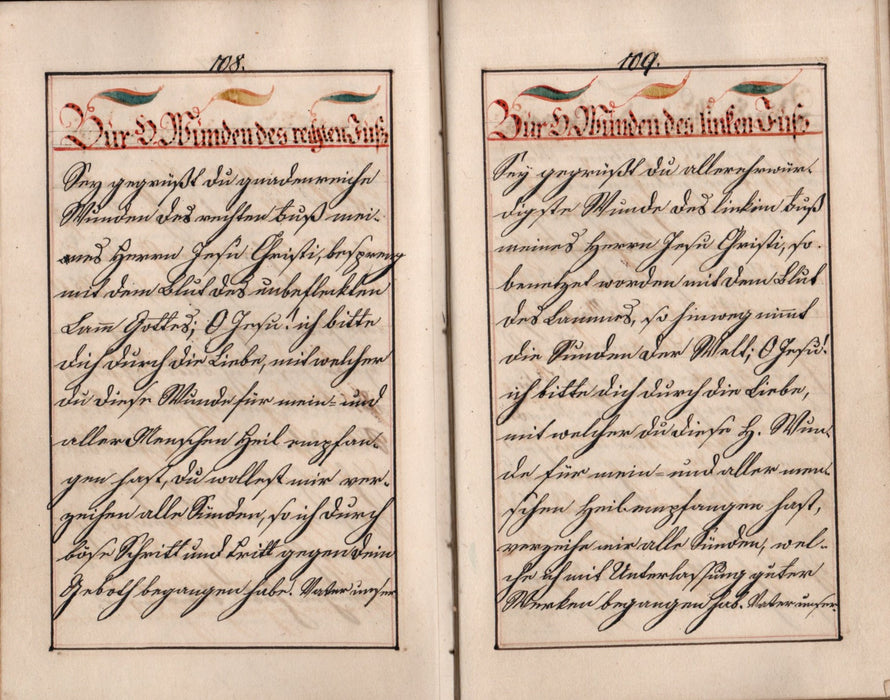 108.
Zur H. Wunden des rechten Fuß
Sey gegrüßt du gnadenreiche
Wunden des rechten Fuß mei-
nes Herrn Jesu Christi, bespreng
mit dem Blut des unbefleckten
Lam̅ Gottes; O Jesu! ich bitte
dich durch die Liebe, mit welcher
du diese Wunde für mein- und
aller Menschen Heil empfan-
gen hast, du wollest mir ver-
zeihen alle Sünden, so ich durch
böse Schritt und Tritt gegen dein
Geboth begangen habe. Vater unser
109.
Zur H. Wunden des linken Fuß
Sey gegrüßt du allerehrwür-
digste Wunde des linken Fuß
meines Herrn Jesu Christi, so
benetzet worden mit dem Blut
des Lammes, so hinweg nimmt
die Sünden der Welt; O Jesu!
ich bitte dich durch die Liebe,
mit welcher du diese H. Wun-
de für mein- und aller men-
schen Heil empfangen hast,
verzeihe mir alle Sünden, wel-
che ich mit Unterlassung guter
Werken begangen hab. Vater unser